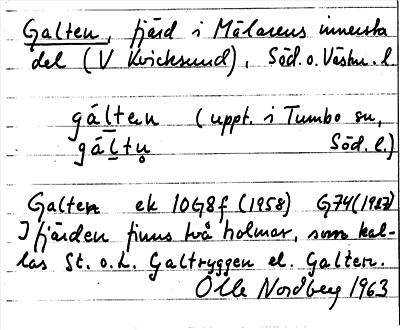 Galten, fjärd i Mälarens innersta
del (V Kvicksund), Söd. o. Västm. l.
gálten (uppt. i Tumbo sn,
gáltn̥ Söd. l.)
Galten ek 10G8f (1958) G74 (1987)
I fjärden finns två holmar, som kal-
las St. o. L. Galtryggen el. Galten.
Olle Nordberg 1963